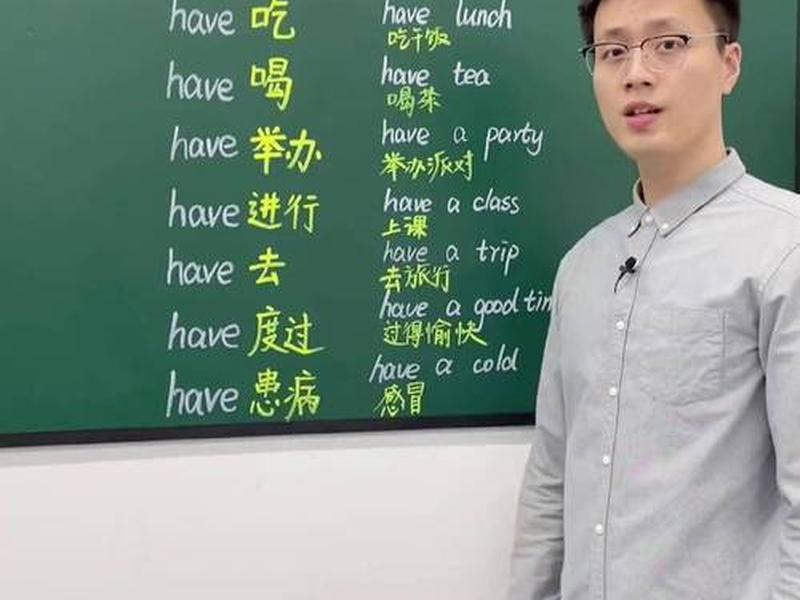 have 吃 have lunch
吃干饭
have 喝 have tea
喝茶
have 举办 have a party
举办派对
have 进行 have a class
上课
have 去 have a trip
去旅行
have 度过 have a good tim
过得愉快
have 患病 have a cold
感冒